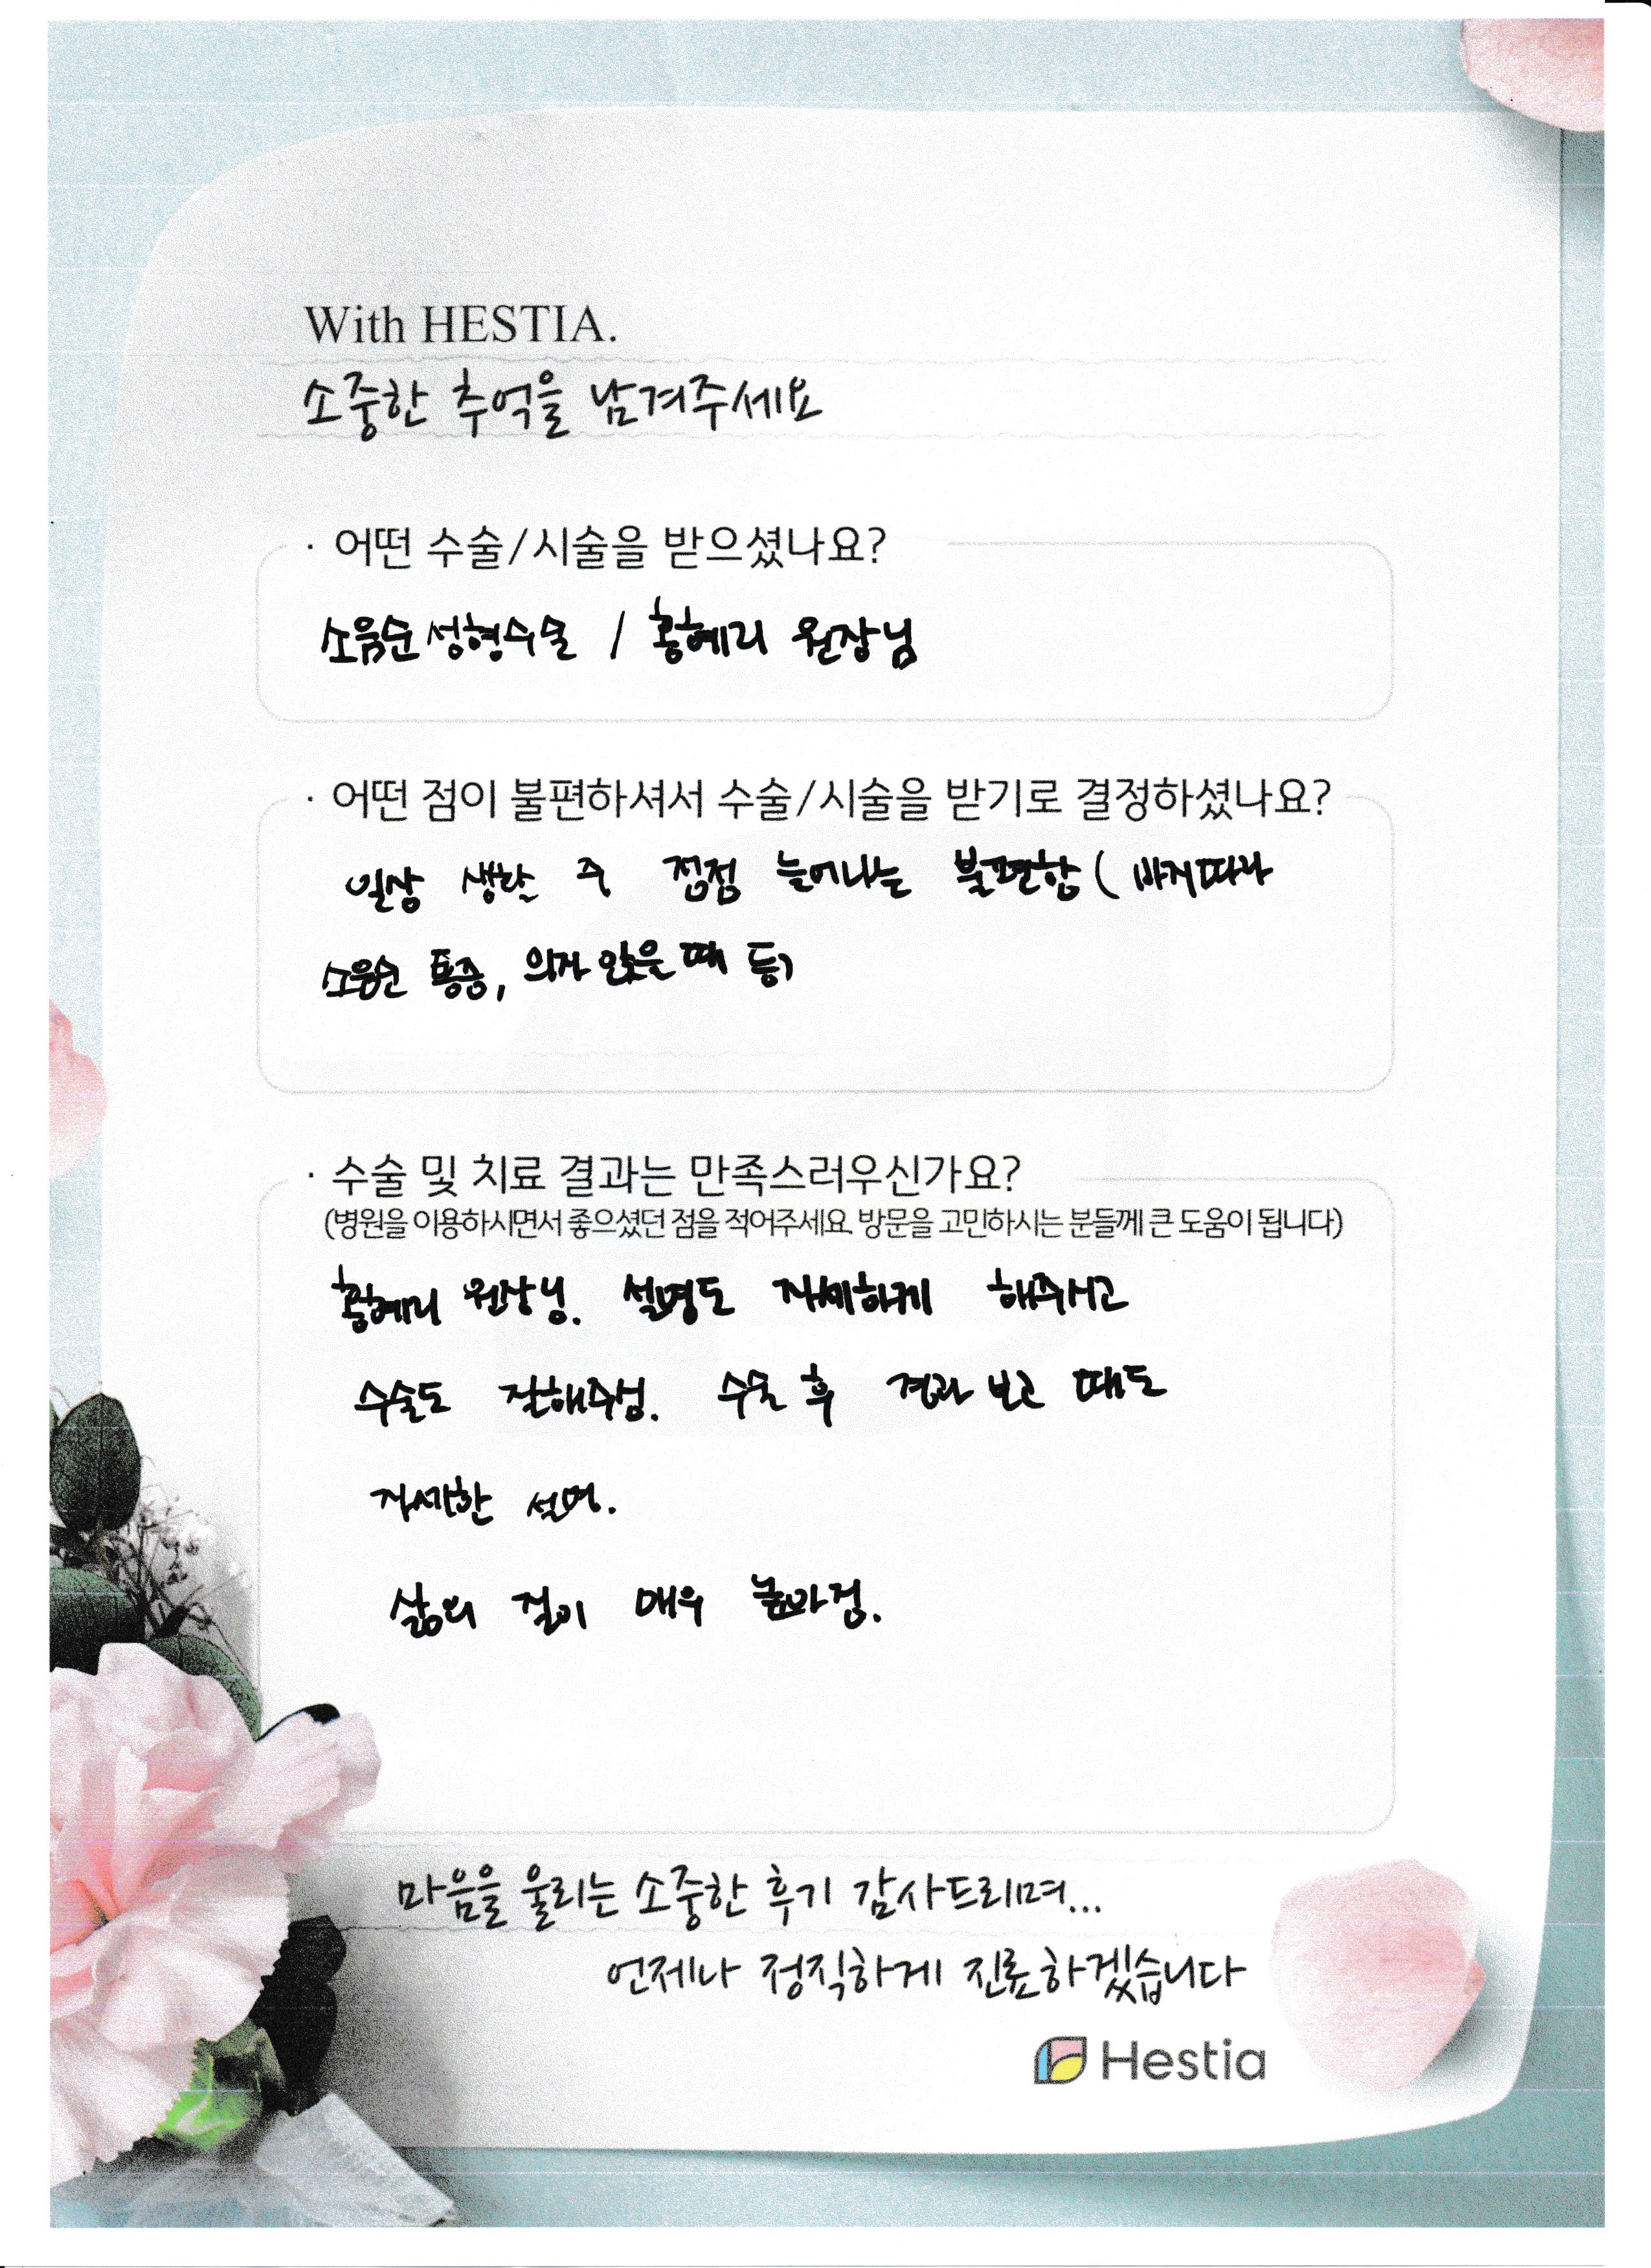 With HESTIA.
소중한 추억을 남겨주세요
· 어떤 수술/시술을 받으셨나요?
소음순성형수술 / 황혜리 원장님
· 어떤 점이 불편하셔서 수술/시술을 받기로 결정하셨나요?
일상 생활 중 점점 늘어나는 불편함 ( 바지따라
소음순 통증, 의자 앉을 때 등)
· 수술 및 치료 결과는 만족스러우신가요?
(병원을 이용하시면서 좋으셨던 점을 적어주세요. 방문을 고민하시는 분들께 큰 도움이 됩니다)
황혜리 원장님. 설명도 자세하게 해주시고
수술도 잘해주심. 수술 후 경과 보고 때도
자세한 설명.
삶의 질이 매우 높아짐.
마음을 울리는 소중한 후기 감사드리며...
언제나 정직하게 진료하겠습니다
Hestia